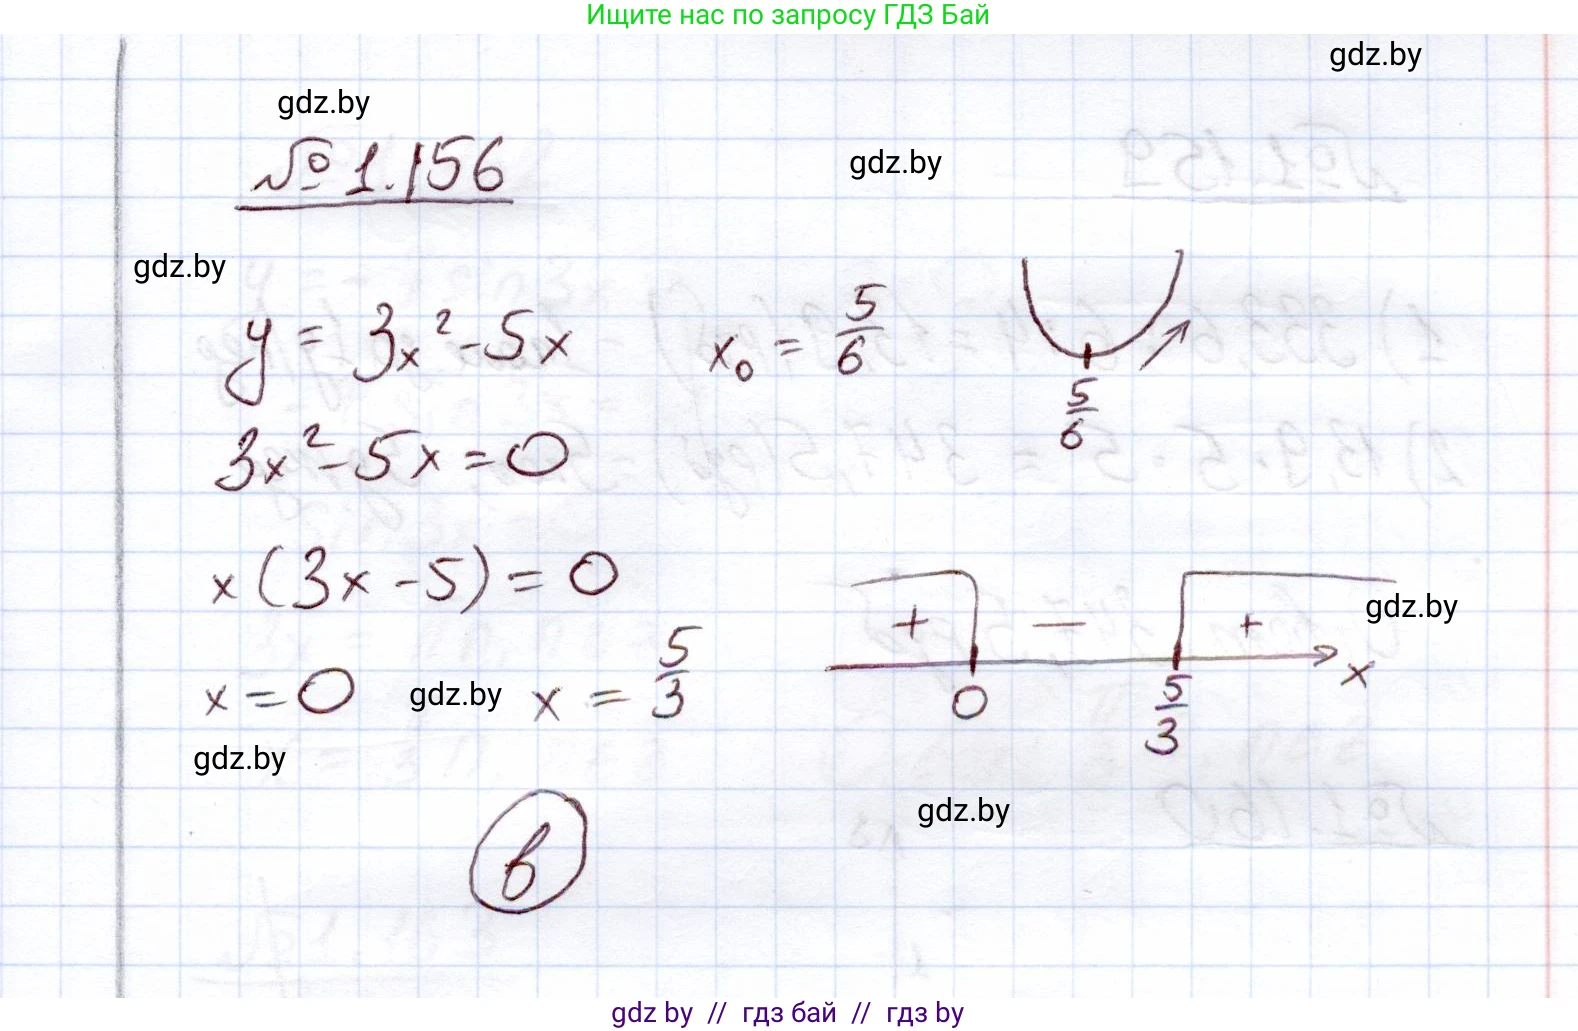 Ищите нас по запросу ГДЗ Бай
gdz.by
gdz.by
№ 1.156
gdz.by
gdz.by
y = 3x² - 5x
x₀ = 5/6
5/6
3x² - 5x = 0
x(3x - 5) = 0
+ — +
gdz.by
x = 0
gdz.by
x = 5/3
0
5/3
x
gdz.by
gdz.by
в
gdz by // гдз бай // gdz by